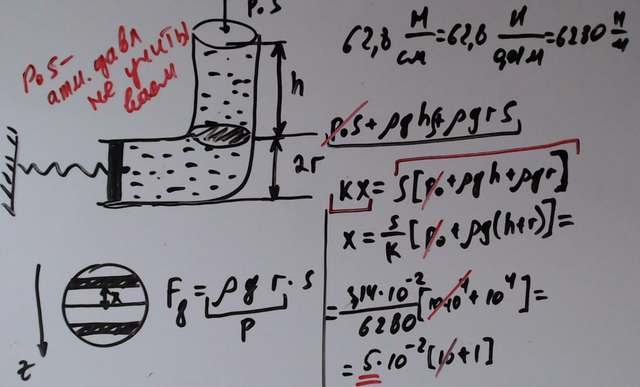 P₀S
P₀S-
атм. давл
не учиты
ваем
h
2r
62,8 Н/см = 62,8 Н/0,01м = 6280 Н/м
p₀S + ρghS + ρgrS
kx = S[p₀ + ρgh + ρgr]
x = S/k [p₀ + ρg(h+r)] =
= 3,14·10⁻²/6280 [10·10⁴ + 10⁴] =
= 5·10⁻² [10 + 1]
x
F_g = ρgr·S
P
z